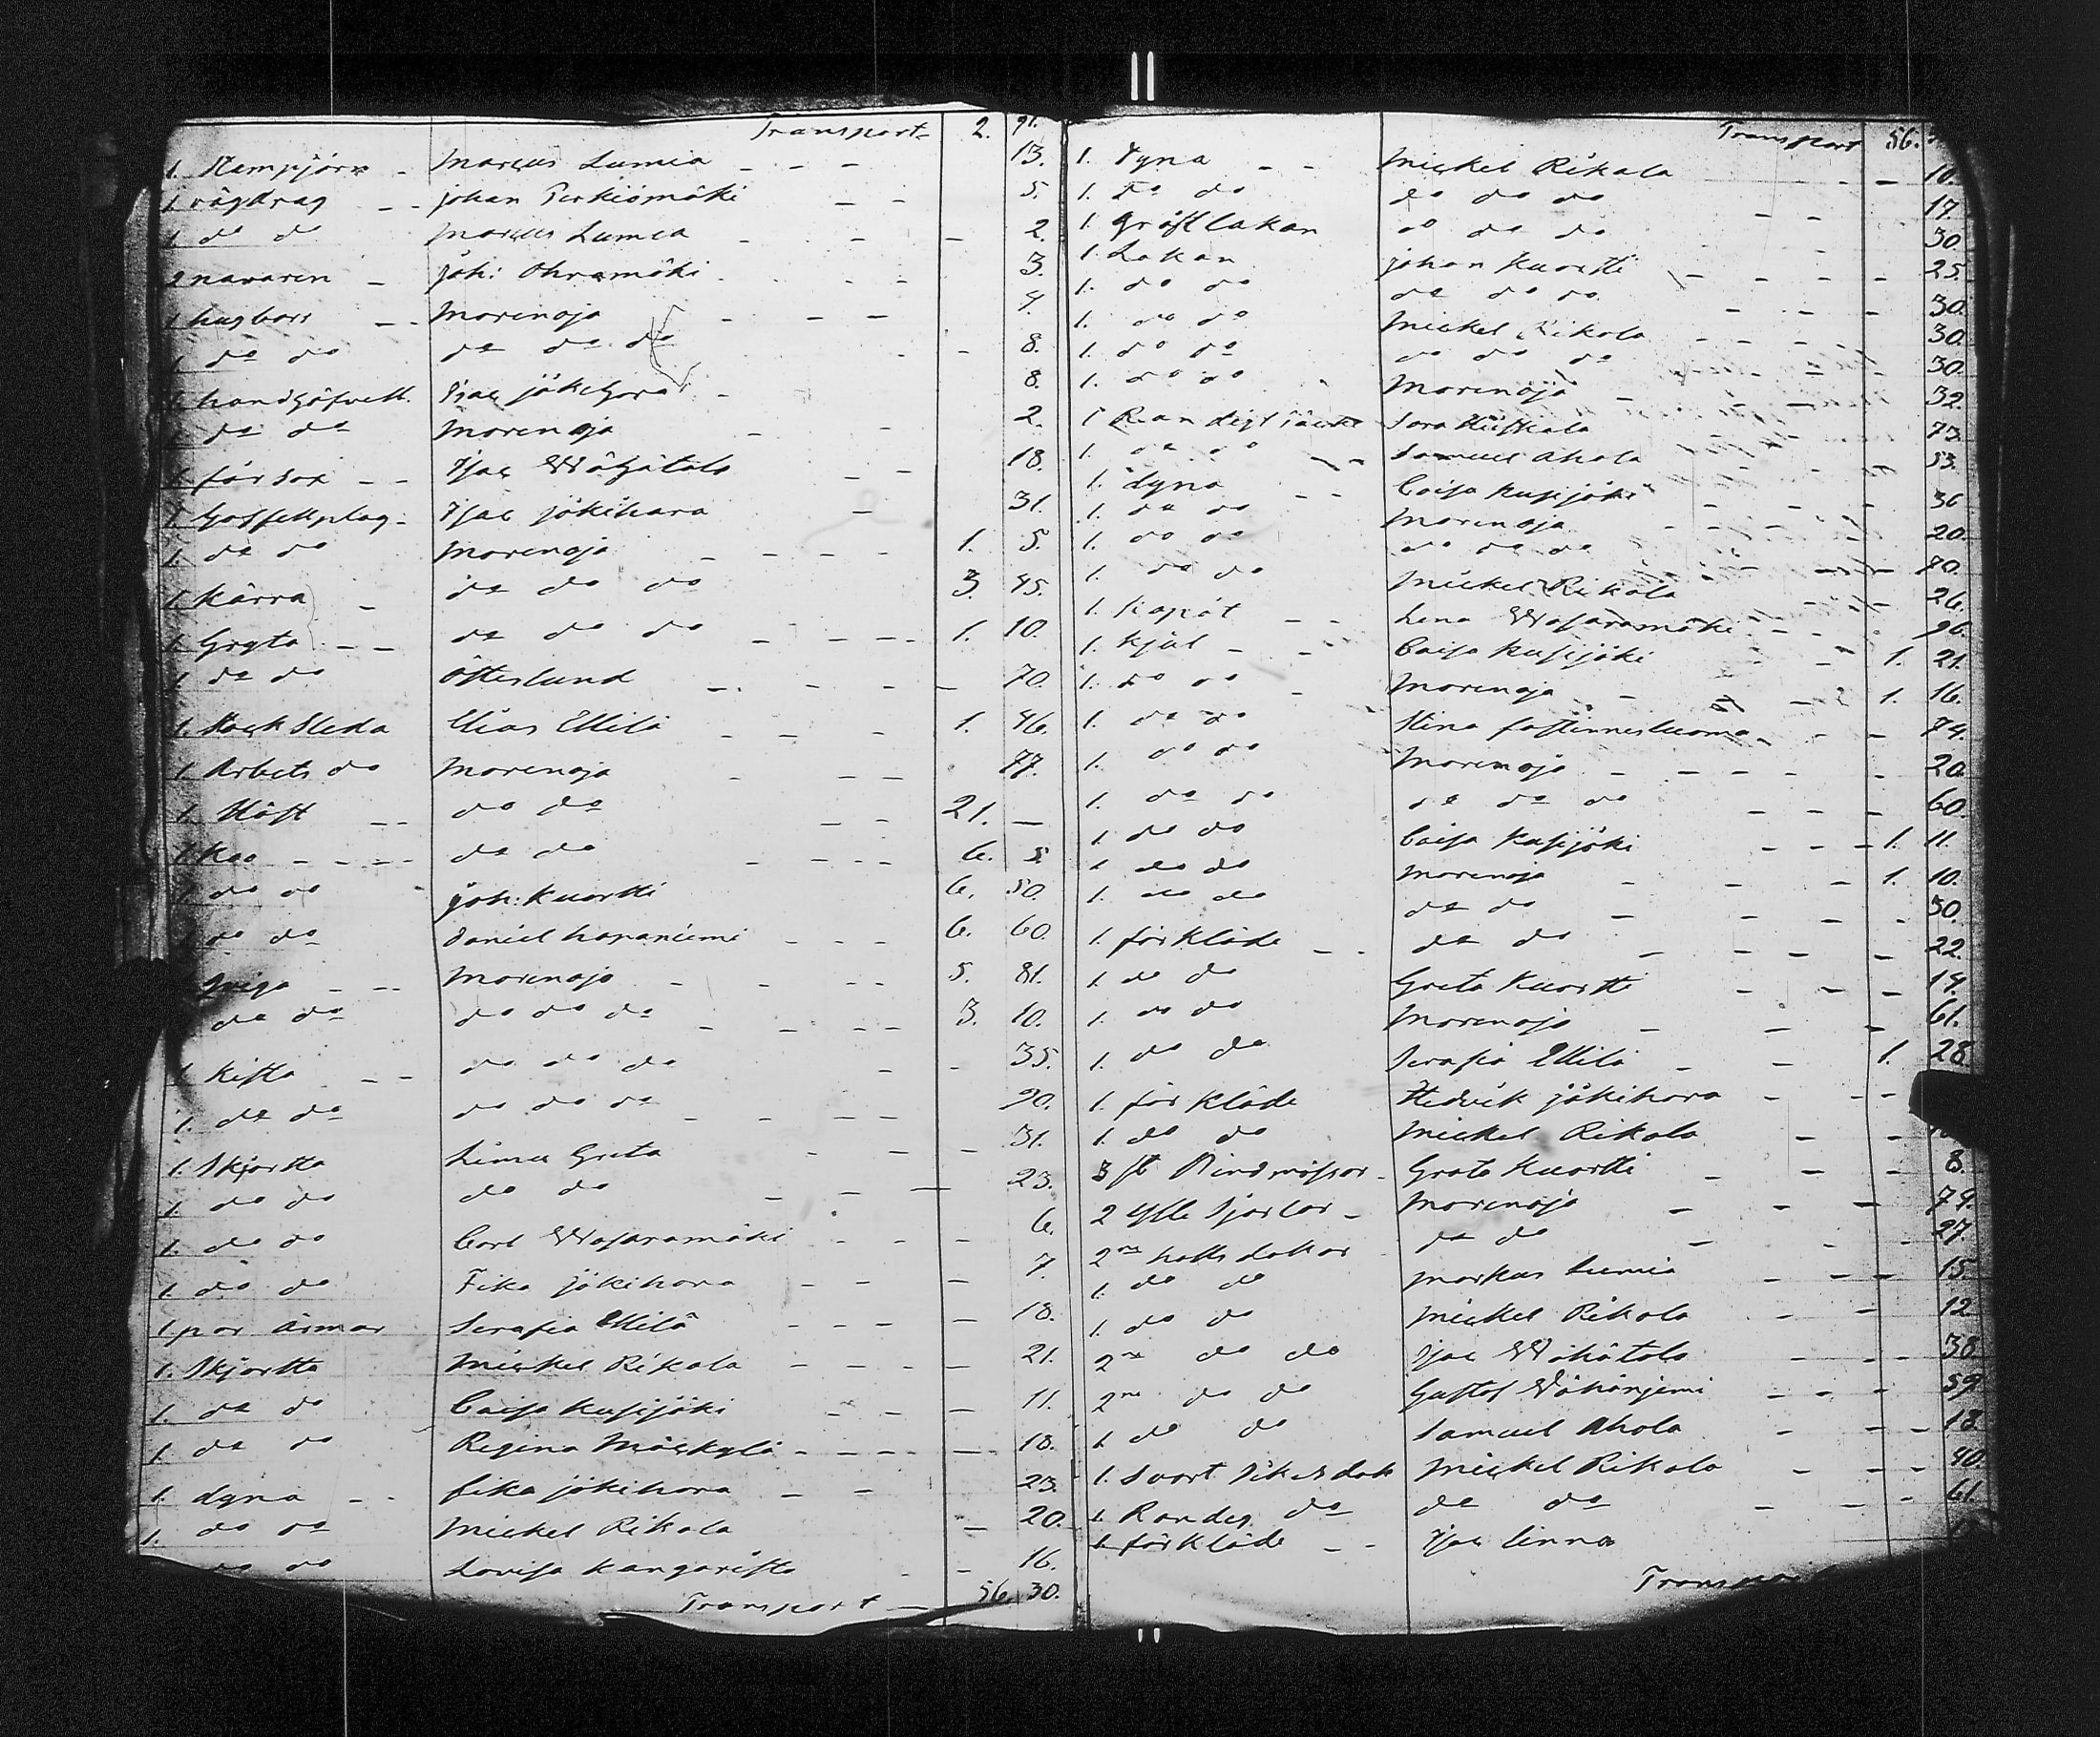 Transport 2. 91.
1. Stampjärn - Marcus Lumia - - - 13.
1. vågdrag - - johan Perkiömäki - - 5.
1. do do Marcus Lumia - - - 2.
2 navaren - joh: Ohramäki - - 3.
1 Morenoja - - - 4.
1. do do do do do - - 8.
jökihara - 8.
1. do do Morenoja - - 2.
1 får sax - - Isac Wähätalo - 18.
Isac jökihara - 31.
1. do do Morenoja - - - - 1. 5.
1. Kärra - do do do 3. 45.
1. Gryta - - do do do - - - - 1. 10.
1. do do Österlund - - - - 70.
1. Stäck Sleda Elias Ellilä - - - 1. 46.
1. Arbets do Morenoja - - - 77.
1. Häst - - do do - - 21. -
1. Koo - - - - do do - - - - 6. 5.
1. do do joh: Kuortti 6. 50.
1 do do Daniel haapaniemi - - - 6. 60.
Qviga - - - Morenoja - - - - 5. 81.
do do do do do - - - - 3. 10.
1 Kista - - do do do - - 35.
1. do do do do do - - - - 90.
1. Skjortta Greta - - - 31.
1. do do do do - - - 23.
1. do do Carl Wasaramäki - - - 6.
1 do do Fika jökihara - - - 7.
1 par ärmar Serafia Ellilä - - - - 18.
1. Skjortta Mickel Rikala - - - - 21.
1. do do Caisa Kusijöki - - - 11.
1. do do Regina Mäekylä - - - - - 18.
1. dyna - - fika jökihara - - 23.
1. do do Mickel Rikala - 20.
do do Lovisa Kangaristo - - 16.
Transport - 56. 30.
Transport 56.
1. Dyna - - Mickel Rikala - - - - 10.
1. do do do do do - - 17.
1 gröft lakan do do do - 30.
1. Lakan johan Kuortti - - - - 25.
1. do do do do do - - - 30.
1. do do Mickel Rikala - - - - 30.
1. do do do do do 30.
1. do do Morenoja - - - 32.
1 Randigt 73.
1. do do - - Samuel Ahola 53.
1. dyna - - Caisa Kusijöki - - - 36
1. do do Morenoja - - - - 20.
1. do do do do do - - 80.
1. do do Mickel Rikala - - - 26.
1. Kapåt - - Lena Wasaramäki - - 96.
1. Kjol - - Caisa Kusijöki - - 1. 21.
1. do do - Morenoja - - 1. 16.
1. do do Stina - - - 74.
1. do do Morenoja - - - - - 20.
1. do do do do do - - - 60.
1 do do Caisa Kusijöki - - - 1. 11.
1 do do Morenoja - - - 1. 10.
1. do do do do - - - - 50.
1. förkläde - - do do - - - - 22.
1 do do Greta Kuortti - - - 14.
1. do do Morenoja - - - 61.
1. do do Serafia Ellilä - - 1. 28.
1. förkläde Hedvik jökihara - - -
1. do do Mickel Rikala - -
3 st Bindmössor - Greta Kuortti - - - 8.
2 Morenoja - - - 74.
2ne halls dukar do do - - - 27.
1. do do Markus Lumia - - - 15.
1. do do Mickel Rikala - - 12.
2ne do do Isac Wähätalo - - - 38.
2ne do do Gustaf Wähänjemi - - - 59.
1 do do Samuel Ahola - - - 18.
1. Svart Mickel Rikala - - - 40.
1. Randig do do do - - - 61.
1 förkläde - - Isac Linna
Transport